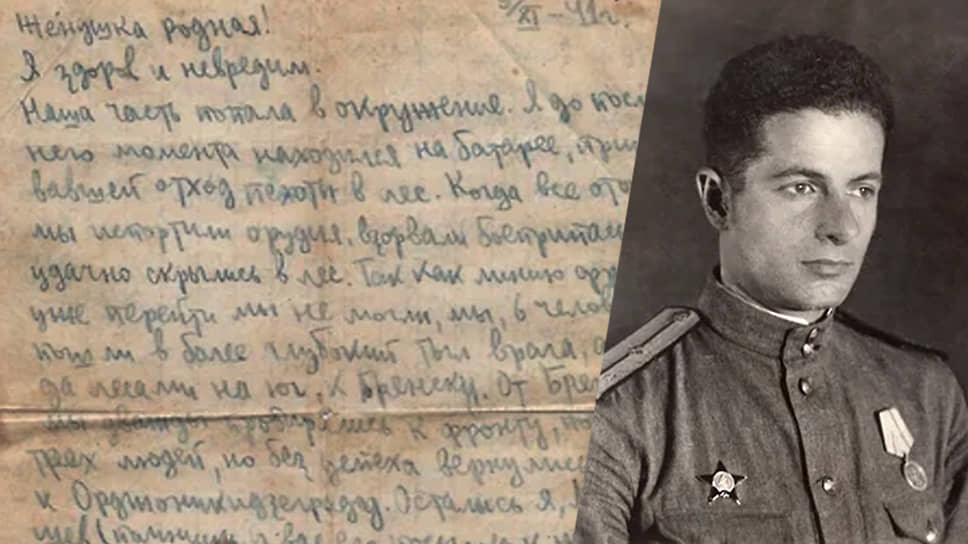 5/XI-41г.
Женушка родная!
Я здоров и невредим.
Наша часть попала в окружение. Я до посл
него момента находился на батарее, при
вавшей отход пехоты в лес. Когда все ото
мы испортили орудия, взорвали боеприпас
удачно скрылись в лес. Так как линию фр
уже перейти мы не могли, мы, 6 челов
пошли в более глубокий тыл врага, о
да лесами на юг, к Бренску. От Бре
мы дважды пробирались к фронту, по
трех людей, но без успеха вернулись
к Орджоникидзеграду. Остались я,
шев (помнишь